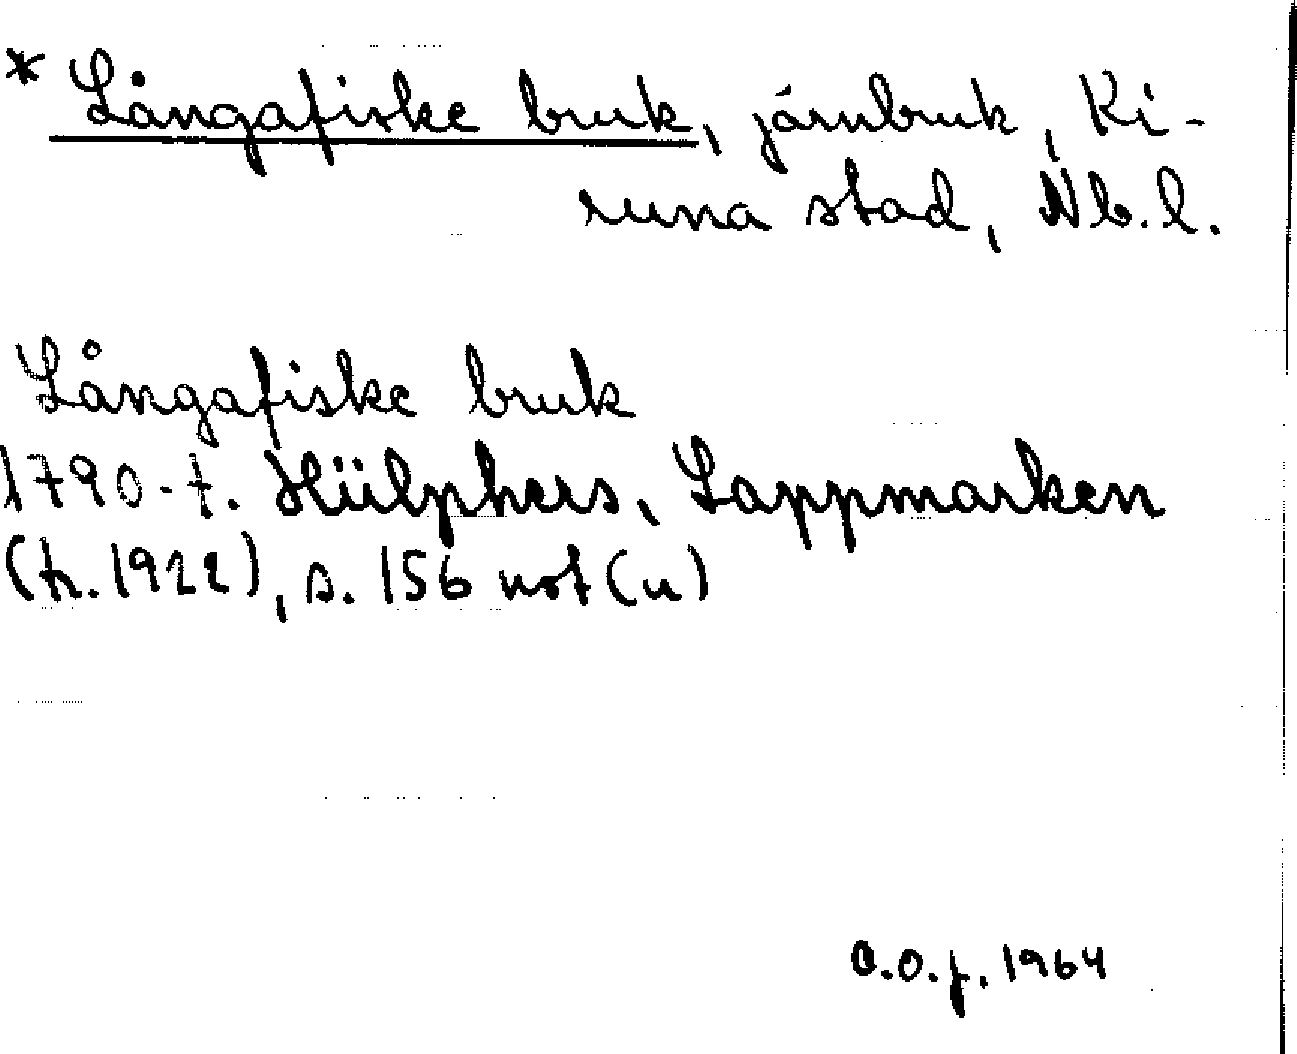 * Långafiske bruk, järnbruk, Ki-
runa stad, Nb.l.
Långafiske bruk
1790-t. Hülphers, Lappmarken
(tr. 1922), s. 156 not (u)
O.O.f. 1964